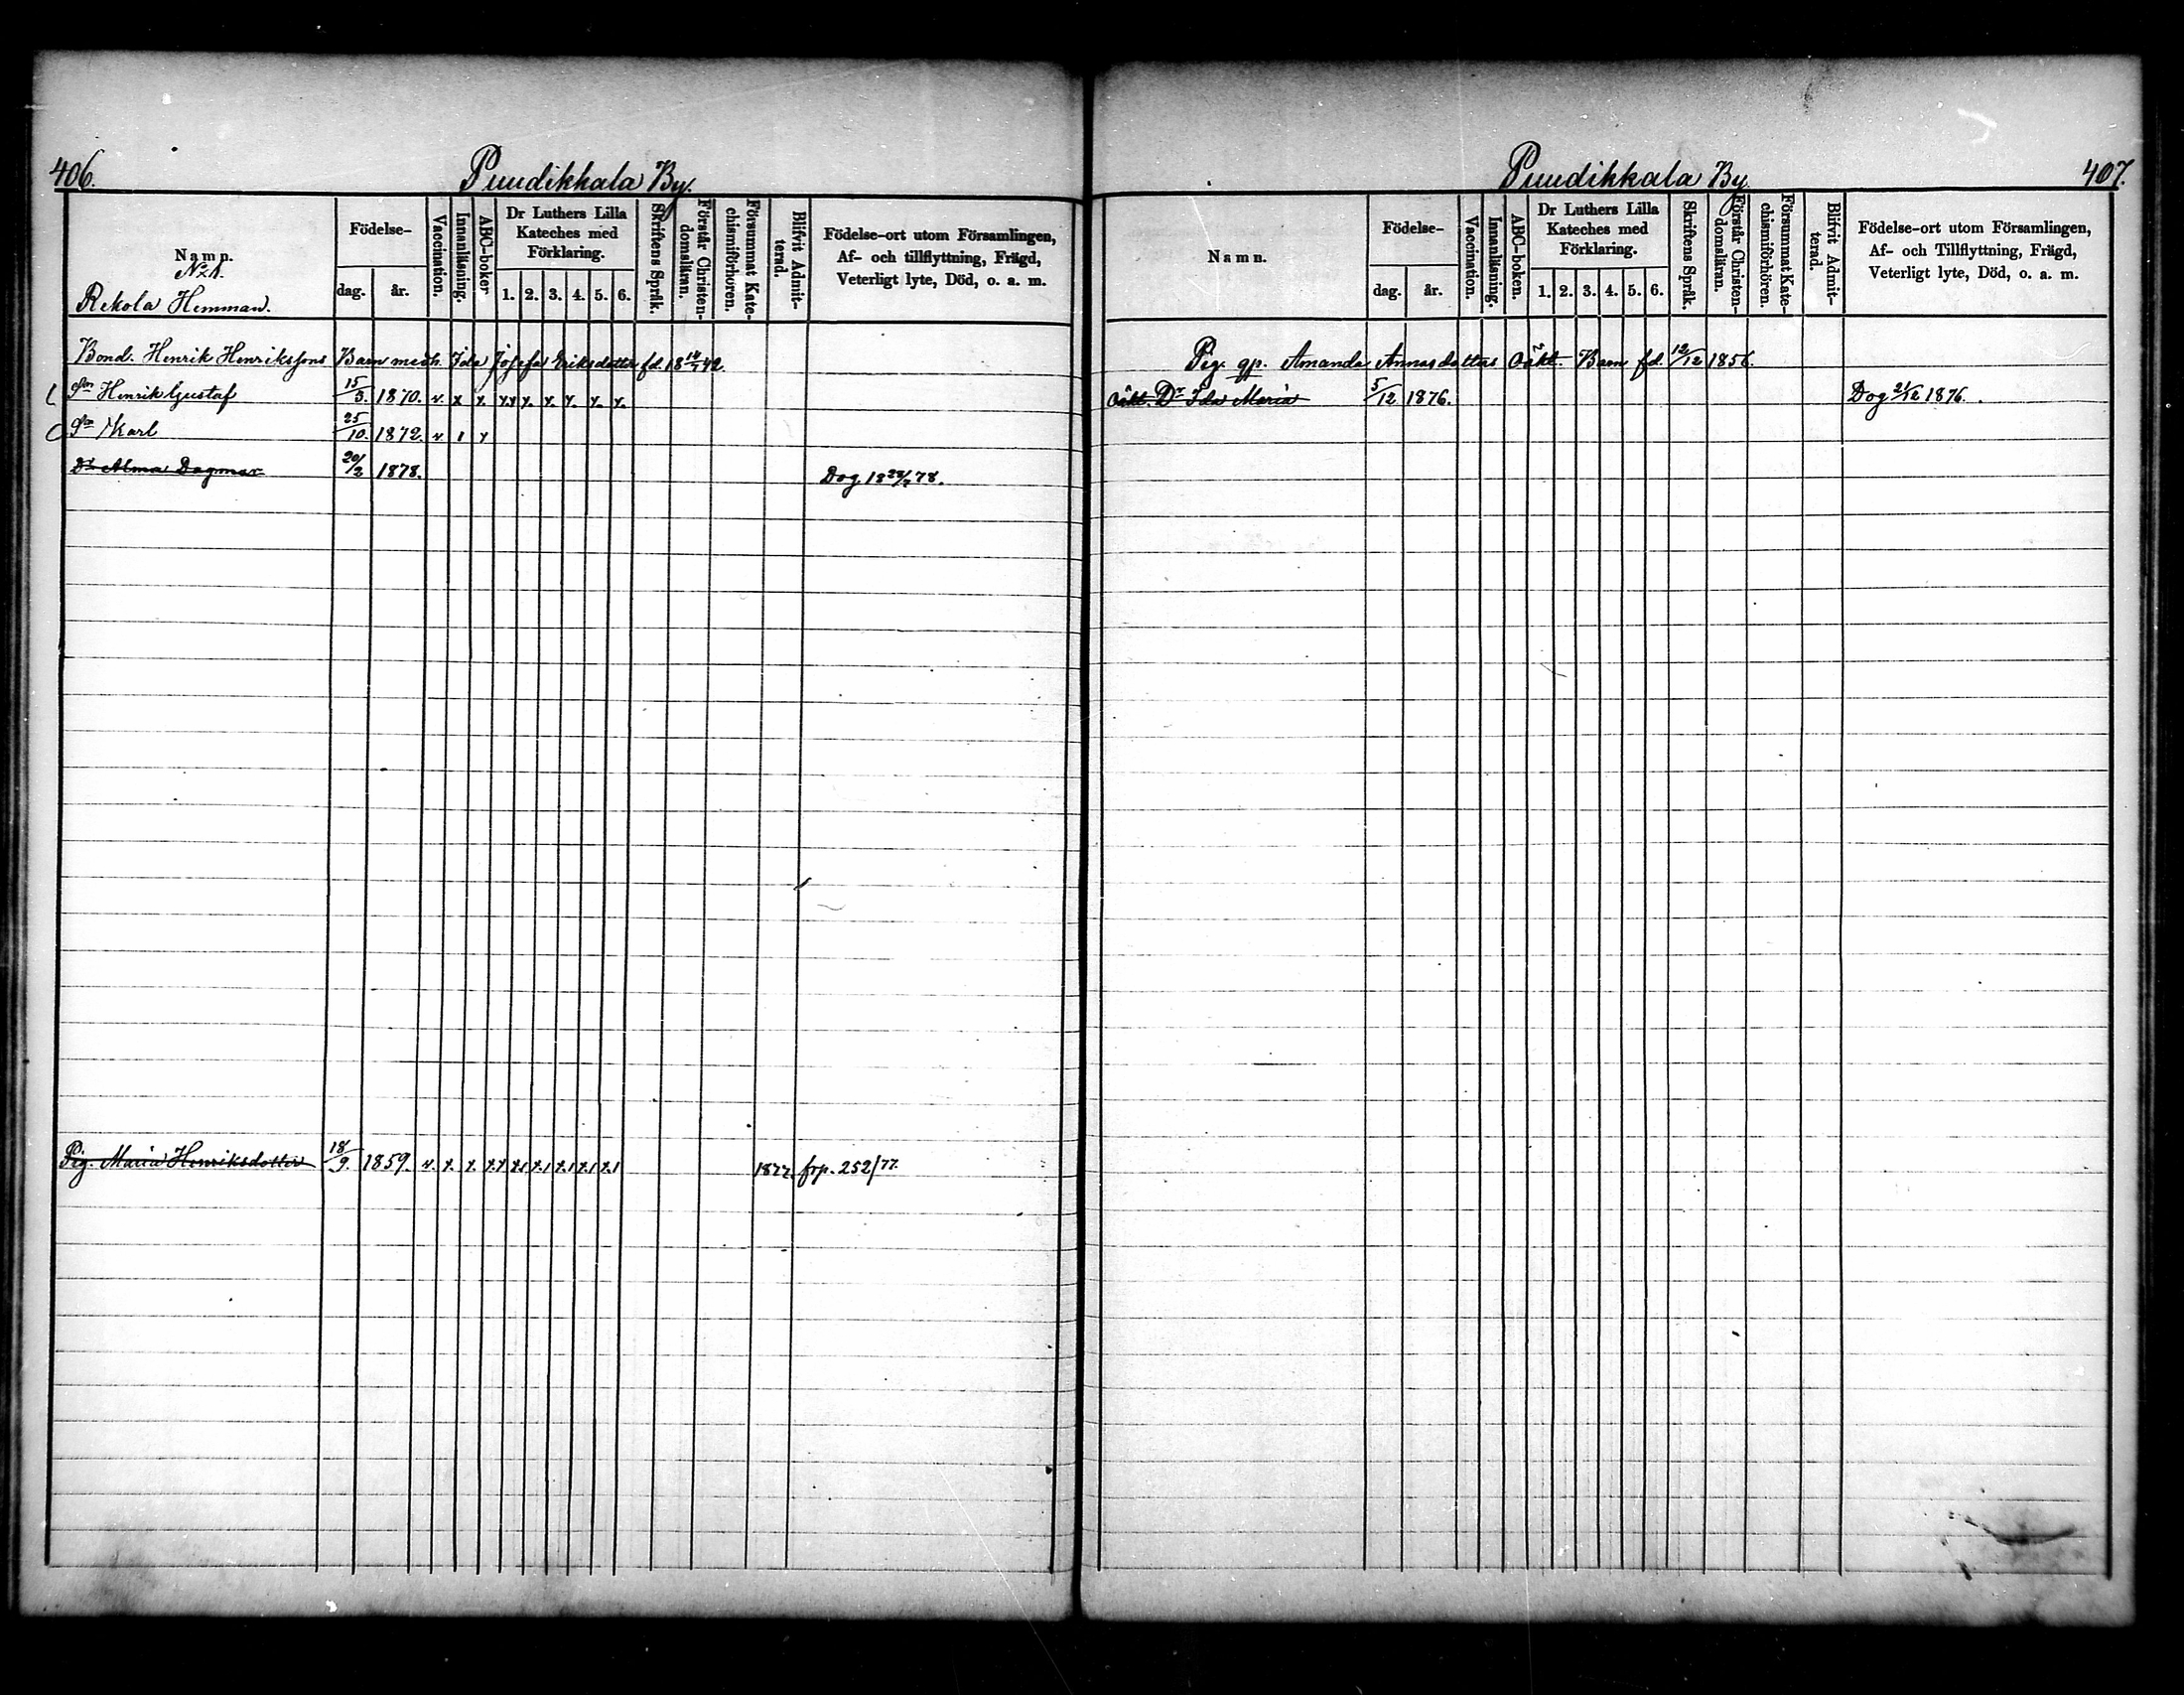 406.
Puudikkala By.
Namn.
No 1.
Rekola Hemman.
Födelse-
dag.
år.
Vaccination.
Innanläsning.
ABC-boken
Dr Luthers Lilla
Kateches med
Förklaring.
1. 2. 3. 4. 5. 6.
Skriftens Språk.
Förstår Christen-
domsläran.
Försummat Kate-
chismiförhören.
Blifvit Admit-
terad.
Födelse-ort utom Församlingen,
Af- och tillflyttning, Frägd,
Veterligt lyte, Död, o. a. m.
Bond. Henrik Henrikssons Barn med h. Ida Josefa Eriksdotter fd. 18 42
Sn Henrik Gustaf 15/3. 1870. v. x x. x.x x. x. x. x. x.
Sn Karl 25/10. 1872. v. 1 x
Dr Alma Dagmar 20/2 1878. Dog 18 78.
Pig. Maria Henriksdotter 18/9. 1859. v. x. x. x.x x.1 x.1 x.1 x.1 x.1 1877. frp. 252/77.
Puudikkala By
407.
Namn.
Födelse-
dag.
år.
Vaccination.
Innanläsning.
ABC-boken.
Dr Luthers Lilla
Kateches med
Förklaring.
1. 2. 3. 4. 5. 6.
Skriftens Språk.
Förstår Christen-
domsläran.
Försummat Kate-
chismiförhören.
Blifvit Admit-
terad.
Födelse-ort utom Församlingen,
Af- och Tillflyttning, Frägd,
Veterligt lyte, Död, o. a. m.
Pig. qp. Amanda Annasdotters Oäkt. Barn fd. 12/12 1856.
Oäkt. Dr Ida Maria 5/12 1876. Dog 21/12 1876.